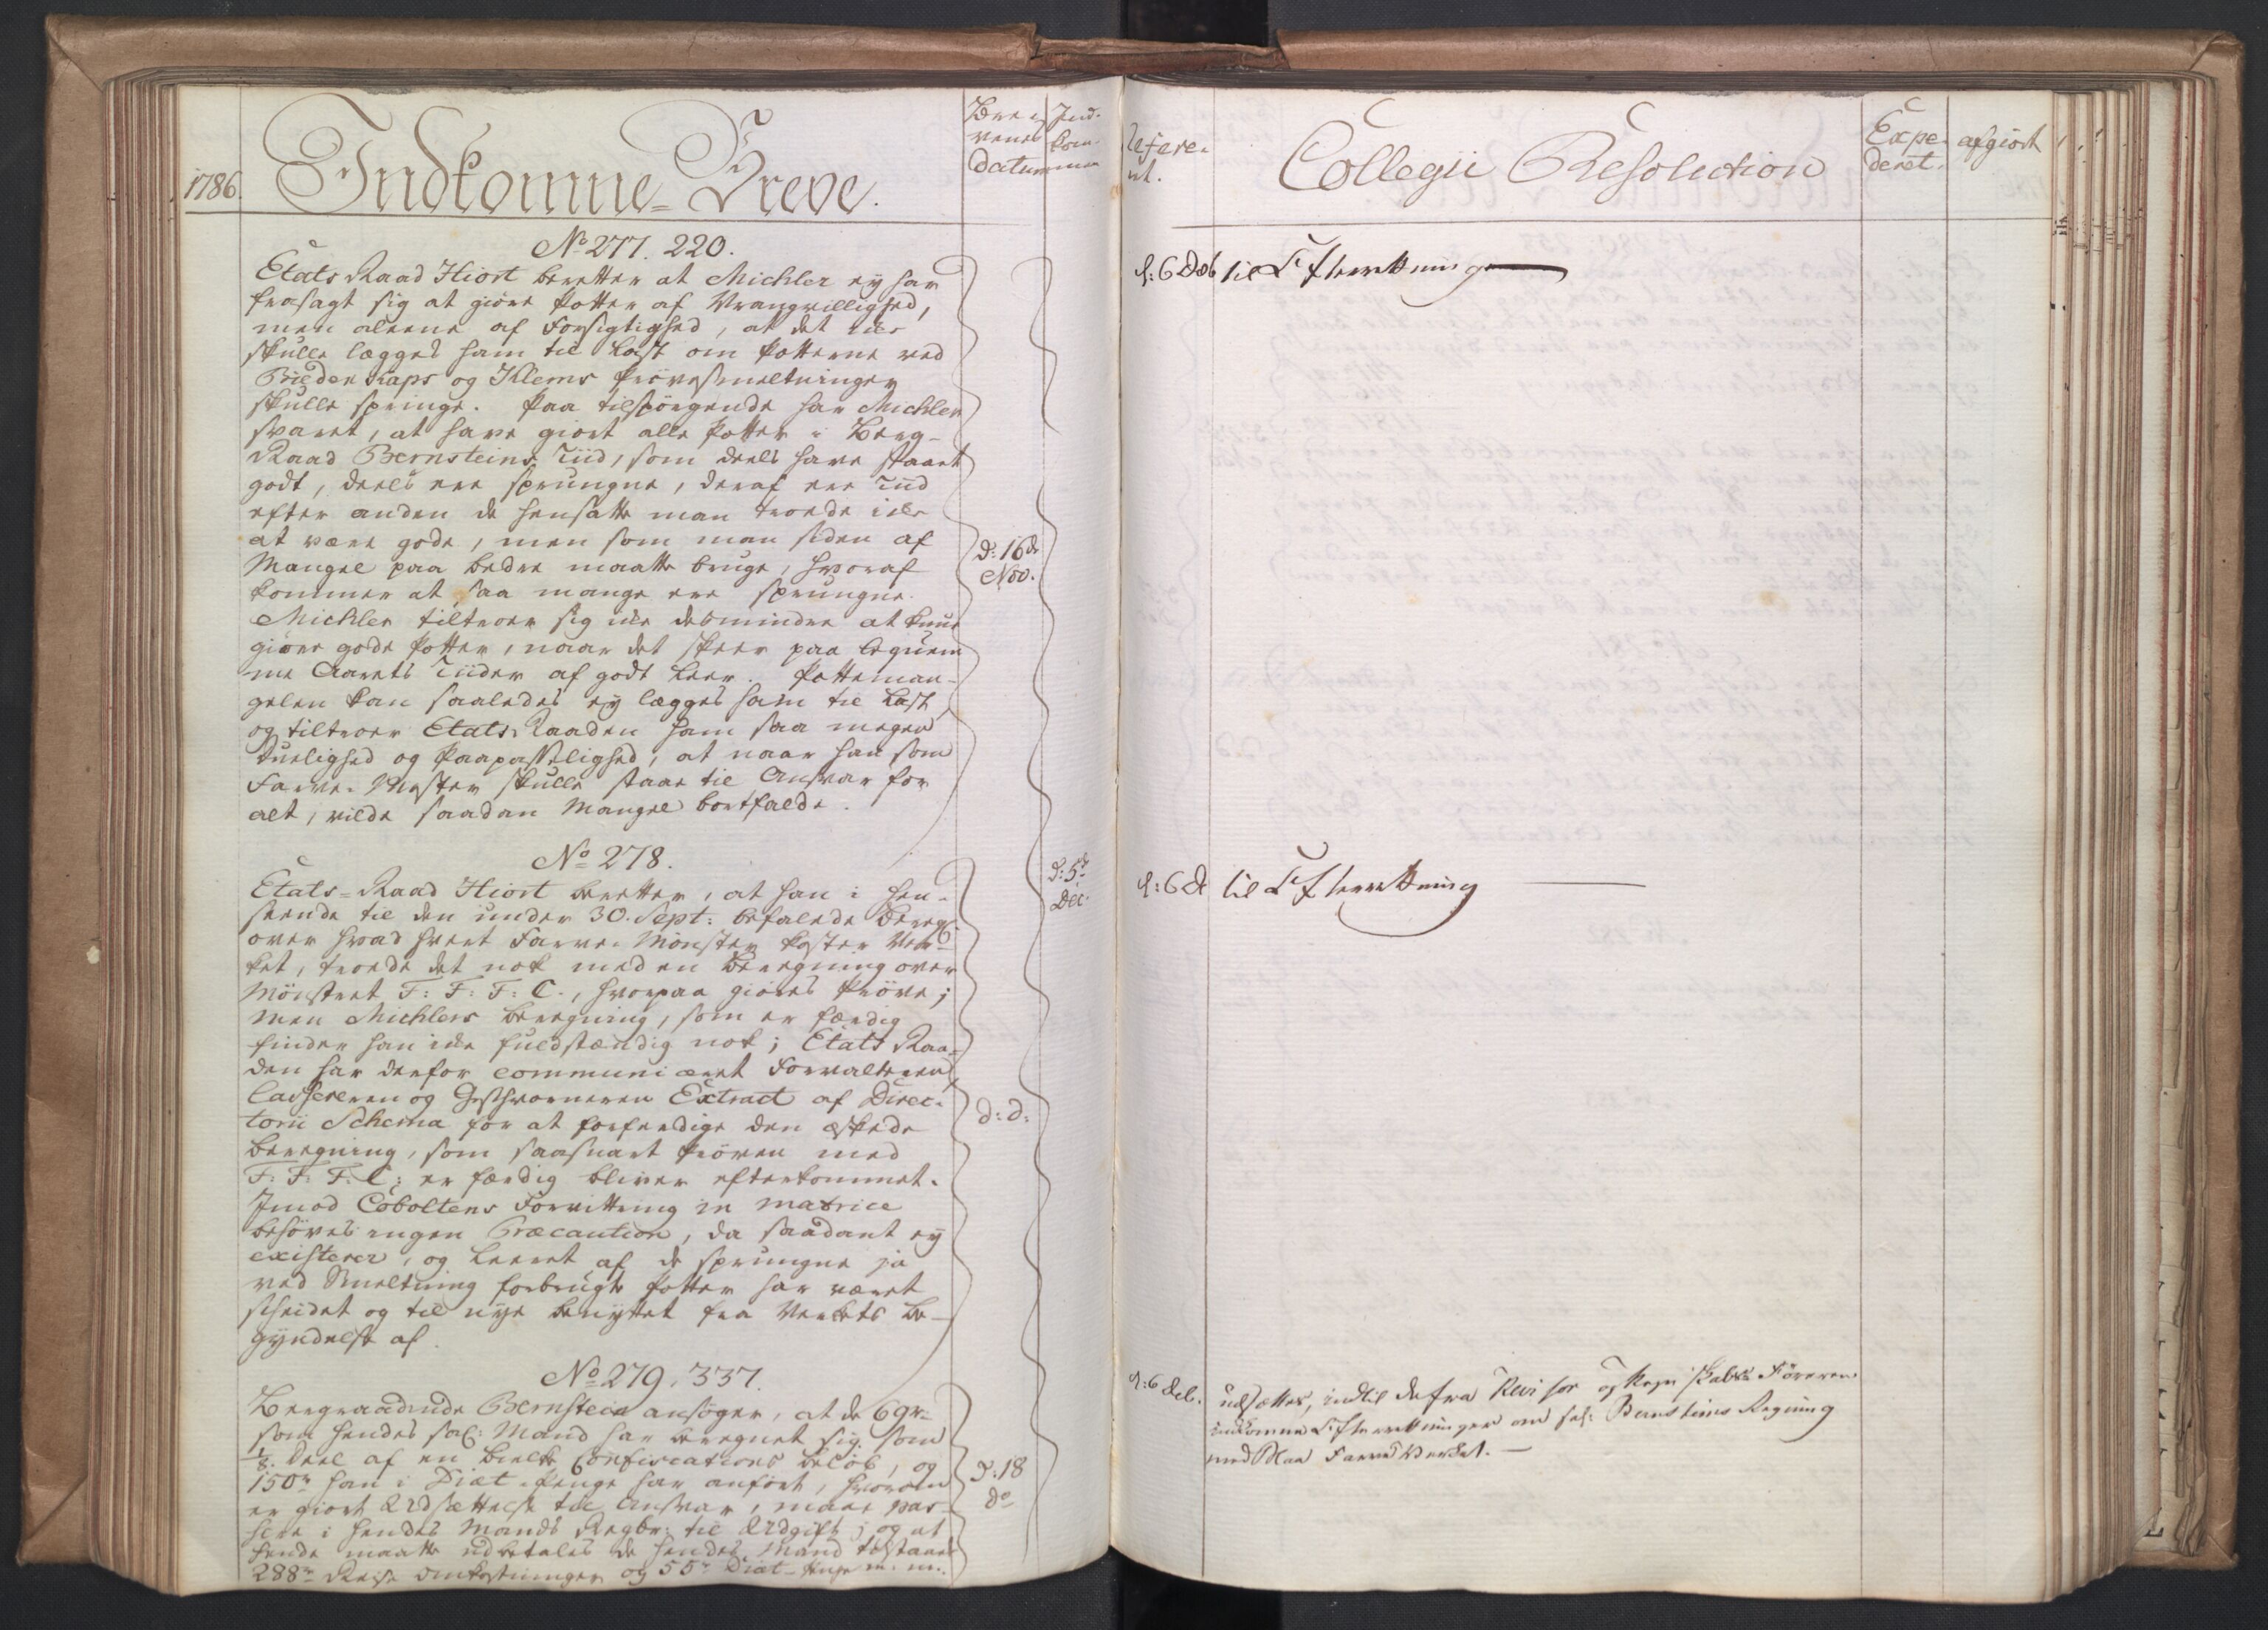 1786.
Indkomne-Breve.
Breve-
venes
Datum
Ind-
kom-
men
No 277. 220.
Etats Raad Hiort beretter at Michler ey har
frasagt sig at giøre Potter af Vrangvillighed,
men aleene af Forsigtighed, at det icke
skulle lægges ham til Last om Potterne ved
Briedenkaps og Klems Prövesmeltninger
skulle springe. Paa tilspörgende har Michler
svaret, at have giort alle Potter i Berg-
Raad Bernsteins Tiid, som deels have staaet
godt, deels ere sprungne, deraf ere Tiid
efter anden de hensatte man troede icke
at være gode, men som man siden af
Mangel paa bedre maatte bruge, hvoraf
kommer at saa mange ere sprungne.
Michler tiltroer sig icke desmindre at kune
giøre gode Potter, naar det skeer paa beqvem-
me Aarets Tiider af godt Leer. Potteman-
gelen kan saaledes ey lægges ham til Last,
og tiltroer Etats Raaden ham saa megen
Duelighed og Paapasselighed, at naar han som
Farve-Mester skulle staae til Ansvar for
alt, vilde saadan Mangel bortfalde.
d: 16de
Nov.
No 278.
Etats-Raad Hiort beretter, at han i Hen-
seende til den under 30. Sept: befalede Beregn:
over hvad hvert Farve-Mönster koster Ver-
ket, troede det nok med en Beregning over
Mönstret F: F: F: C., hvorpaa giöres Pröve;
men Michlers Beregning, som er færdig
finder han icke fuldstændig nok; Etats Raa-
den har derfor communiceret Forvalteren,
Cassereren og Geschworneren Extract af Direc-
torii Schema for at forfærdige den æskede
Beregning, som saasnart Pröven med
F: F: F: C: er færdig bliver efterkommet.
Imod Coboltens Forvittring in matrice
behöves ingen Præcaution, da saadant ey
existerer, og Leeret af de sprungne ja
ved Smeltning forbrugte Potter har været
scheidet og til nye benyttet fra Verkets Be-
gyndelse af.
d: d:
d: 5te
Dec.
No 279. 337.
Bergraadinde Bernstein ansøger, at de 69 r
som hendes sal: Mand har beregnet sig som
1/8. Deel af en Confiscations Belöb, og
150 r han i Diæt-Penge har anfört, hvorom
er giort Udsættelse til Ansvar, maae pas-
sere i hendes Mands Regsk: til Udgift; og at
hende maatte udbetales de hendes Mand tilstaaede
288 r Reise Omkostninger og 55 r Diæt-Penge m: m:.
d: 18
do
Refere-
nt.
Collegii Resolution
Expe-
deret.
afgiort
d: 6 Dec til Efterretning
d: 6 d til Efterretning
d: 6 Dec.
udsættes, indtil de fra Revisor og Regnskabs Föreren
indkomne Efterretninger om sal: Bernsteins Regning
med Blaa Farve Verket.